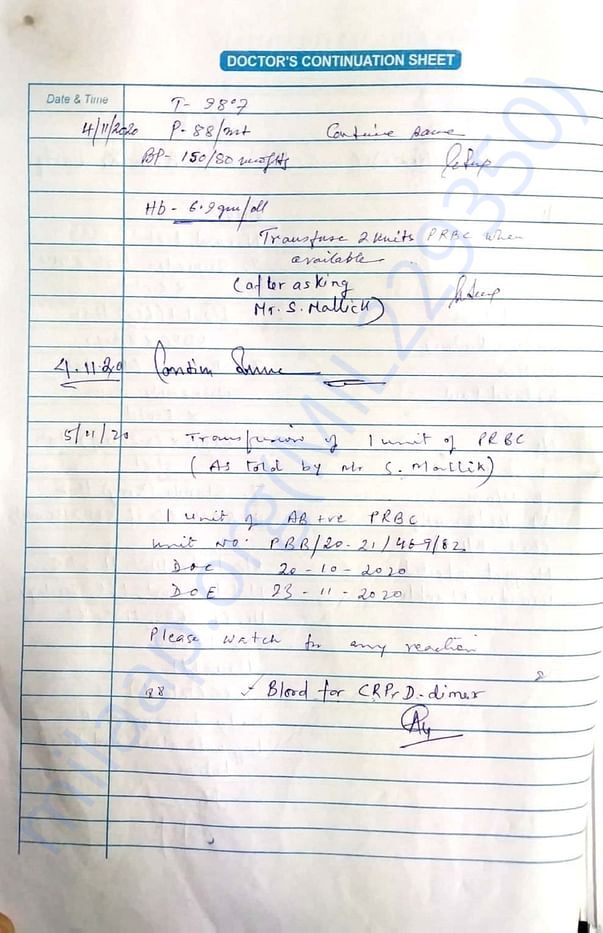 DOCTOR'S CONTINUATION SHEET
Date & Time
T- 98.7
4/11/2020 P- 88/mt Continue same
BP- 150/80 mmHg
Hb - 6.9 gm/dll
Transfuse 2 units PRBC when
available
(after asking
Mr. S. Mallick)
4.11.20 Contin Same
5/11/20 Transfusion of 1 unit of PRBC
(As told by Mr S. Mallik)
1 unit of AB +ve PRBC
Unit No. PBB/20-21/469/82
DOC 20-10-2020
DOE 23-11-2020
Please watch for any reaction
Blood for CRP, D-dimer
milaap.org(MIL_229350)